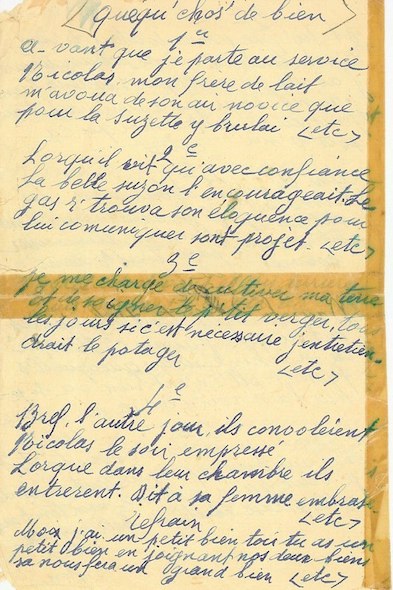 quéqu'chos' de bien
1e
a-vant que je parte au service
Nicolas mon frère de lait
m'avoua de son air novice que
pour la Suzette y brulai <etc>
2e
Lorqu'il vit qu'avec confiance
la belle suzon l'encourageait. Le
gas r'trouva son éloquence pour
lui comuniquer sont projet. <etc>
3e
je me charge de cultiver ma terre
et de soigner le p'tit verger, tous
les jours si c'est nécessaire j'entretien-
drait le potager
<etc>
4e
Bref. l'autre jour, ils convoleient
Nicolas le soir empressé
Lorque dans leur chambre ils
entrèrent. Dit à sa femme embrasé
<etc>
refrain
Moi j'ai un petit bien toi tu as un
petit bien en joignant nos deux biens
sa nous fera un grand bien <etc>